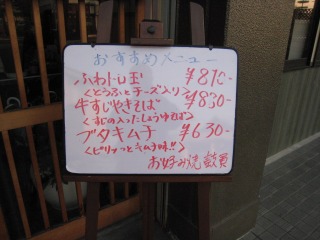 おすすめメニュー
ふわトロ玉 ¥870-
<とうふとチーズ入り>
牛すじやきそば ¥830-
<すじの入ったしょうゆそば>
ブタキムチ ¥630-
<ピリッとキムチ味!!>
お好み焼